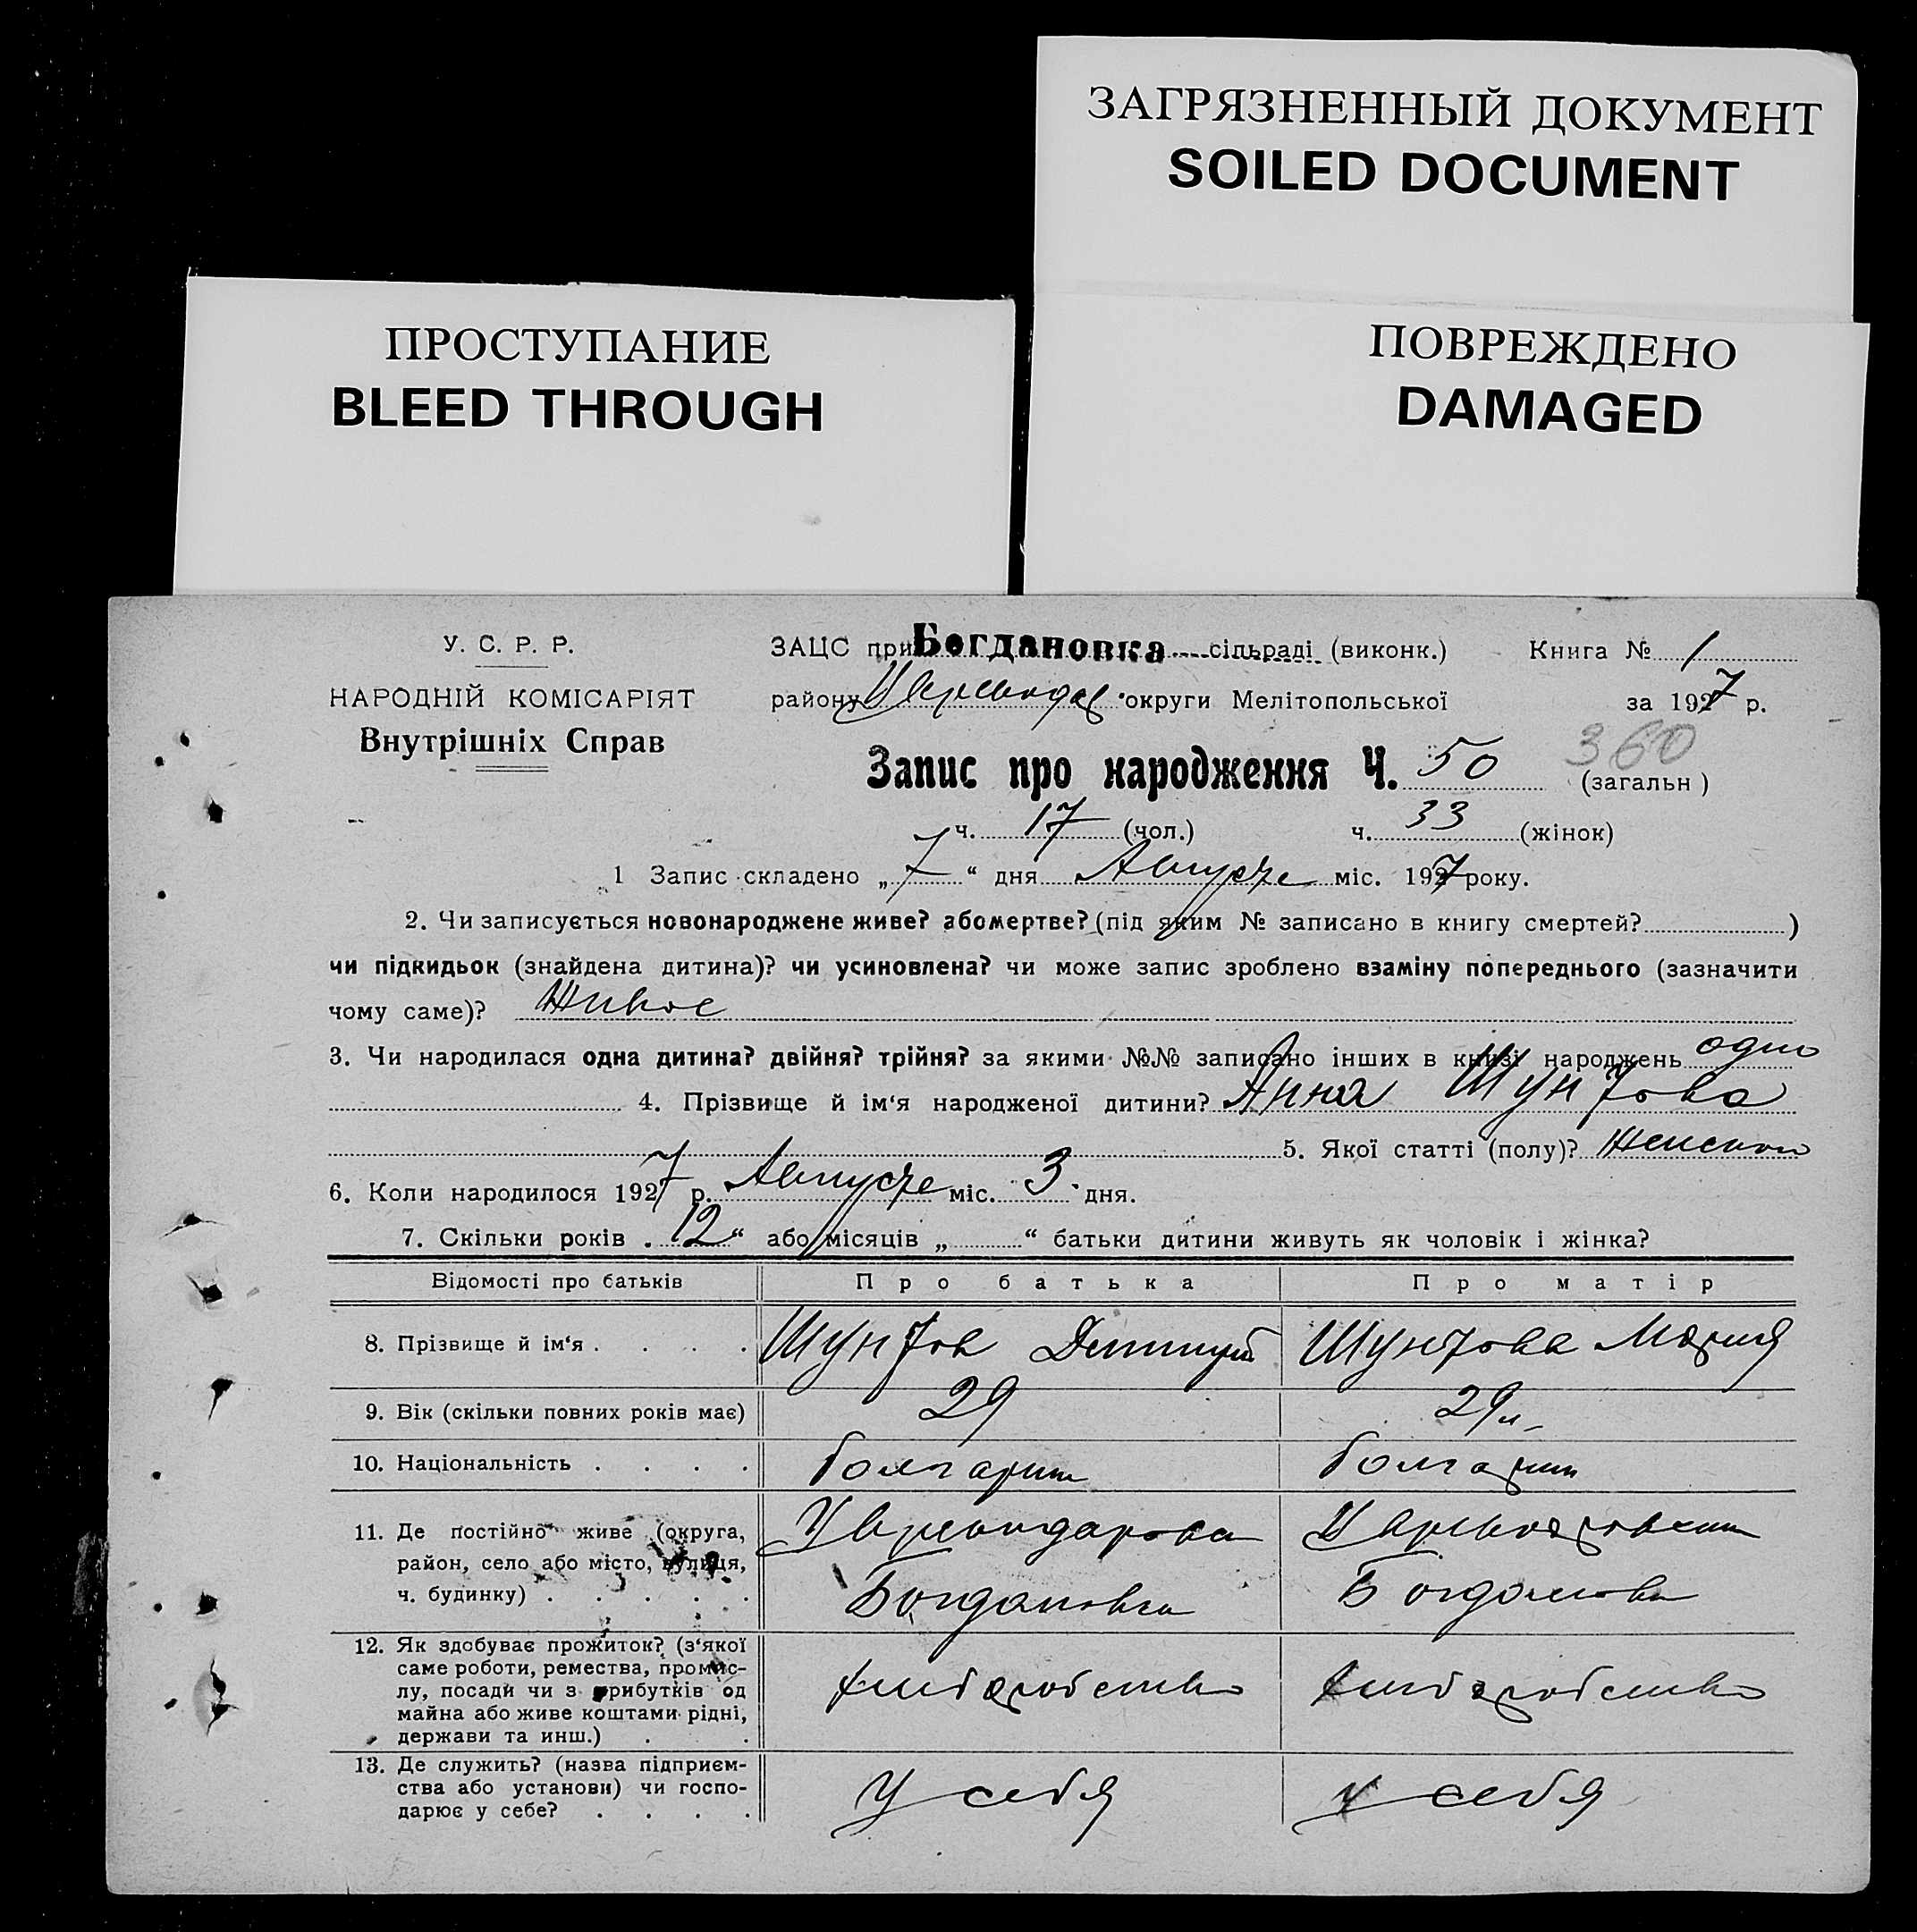 ЗАГРЯЗНЕННЫЙ ДОКУМЕНТ
SOILED DOCUMENT
ПРОСТУПАНИЕ
BLEED THROUGH
ПОВРЕЖДЕНО
DAMAGED
У. С. Р. Р.
НАРОДНІЙ КОМІСАРІЯТ
Внутрішніх Справ
ЗАЦС при Богдановка сільраді (виконк.) Книга № 1
району округи Мелітопольської за 1927 р.
360
Запис про народження Ч. 50 (загальн)
ч. 17 (чол.) ч. 33 (жінок)
1 Запис складено „7“ дня Августе міс. 1927 року.
2. Чи записується новонароджене живе? або мертве? (під яким № записано в книгу смертей? )
чи підкидьок (знайдена дитина)? чи усиновлена? чи може запис зроблено взаміну попереднього (зазначити
чому саме)? Живое
3. Чи народилася одна дитина? двійня? трійня? за якими №№ записано інших в книзі народжень одно
4. Прізвище й ім‘я народженої дитини? Анна Шунтова
5. Якої статті (полу)? Женской
6. Коли народилося 1927 р. Августе міс. 3 дня.
7. Скільки років „12“ або місяців „ “ батьки дитини живуть як чоловік і жінка?
Відомості про батьків Про батька Про матір
8. Прізвище й ім‘я . . . . Шунтов Дмитрий Шунтова Мария
9. Вік (скільки повних років має) 29 29 л.
10. Національність . . . . болгарин болгарин
11. Де постійно живе (округа,
район, село або місто, вулиця,
ч. будинку) . . . . .
Богдановка Богдановка
12. Як здобуває прожиток? (з‘якої
саме роботи, ремества, промис-
лу, посади чи з прибутків од
майна або живе коштами рідні,
держави та инш.) . .
хлиборобство хлиборобство
13. Де служить? (назва підприєм-
ства або установи) чи госпо-
дарює у себе? . . . .
у себя у себя